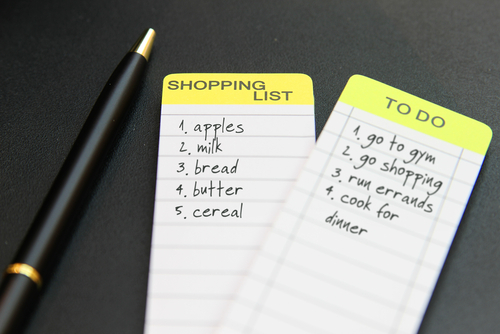 SHOPPING
LIST
1. apples
2. milk
3. bread
4. butter
5. cereal
TO DO
1. go to gym
2. go shopping
3. run errands
4. cook for
dinner